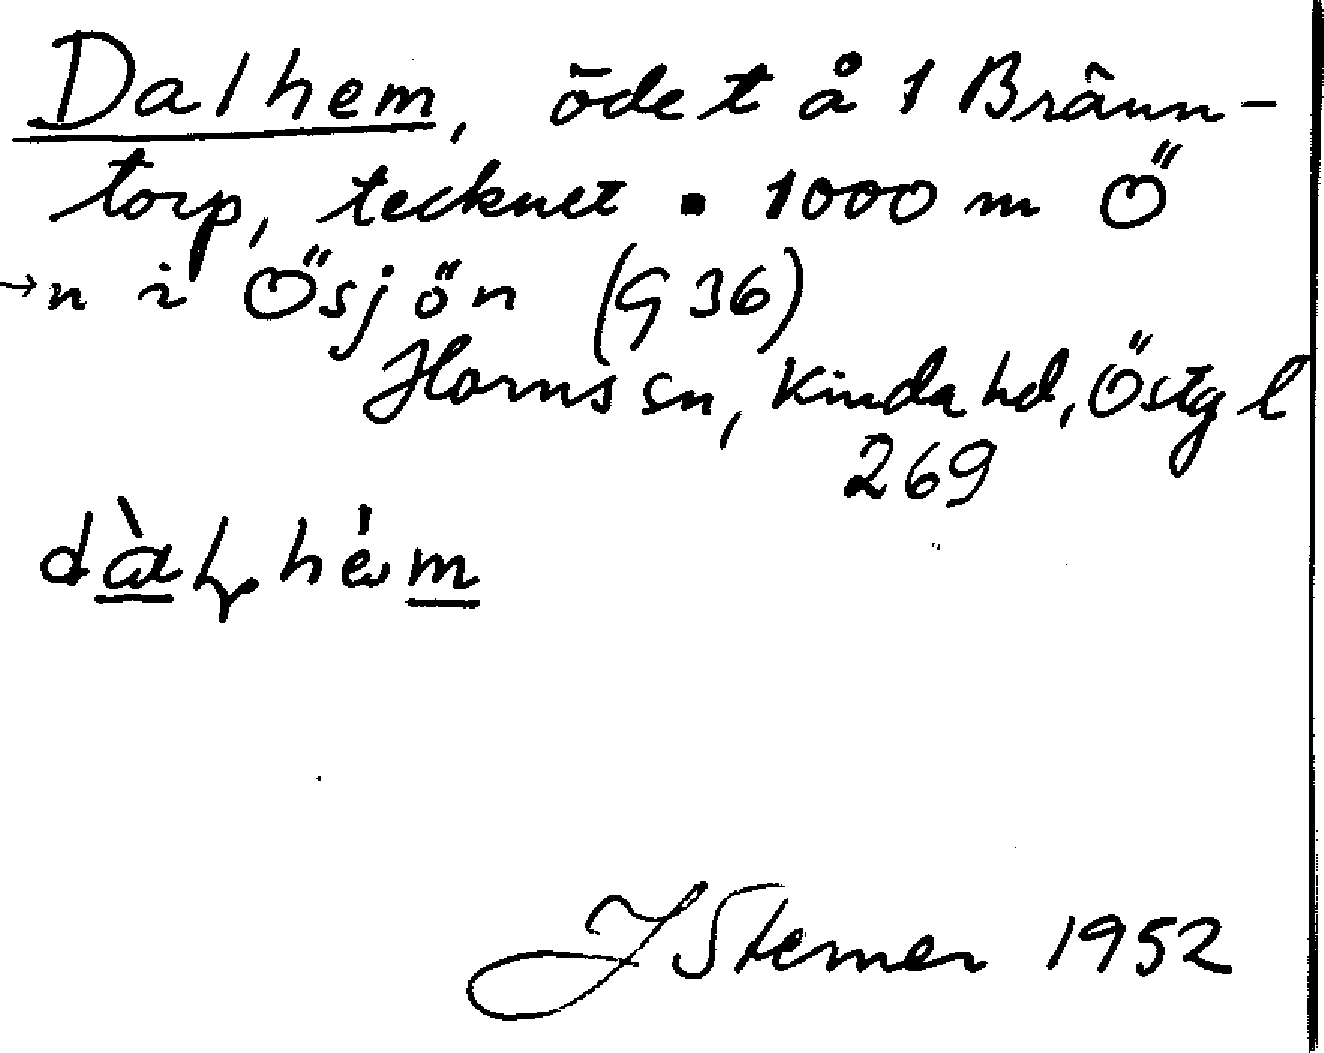 Dalhem, öde t å 1 Bränn-
torp, tecknet ▪ 1000 m Ö
→n i Ösjön (G 36)
Horns sn, Kinda hd, Östg l
269
dàlhém
J Sterner 1952